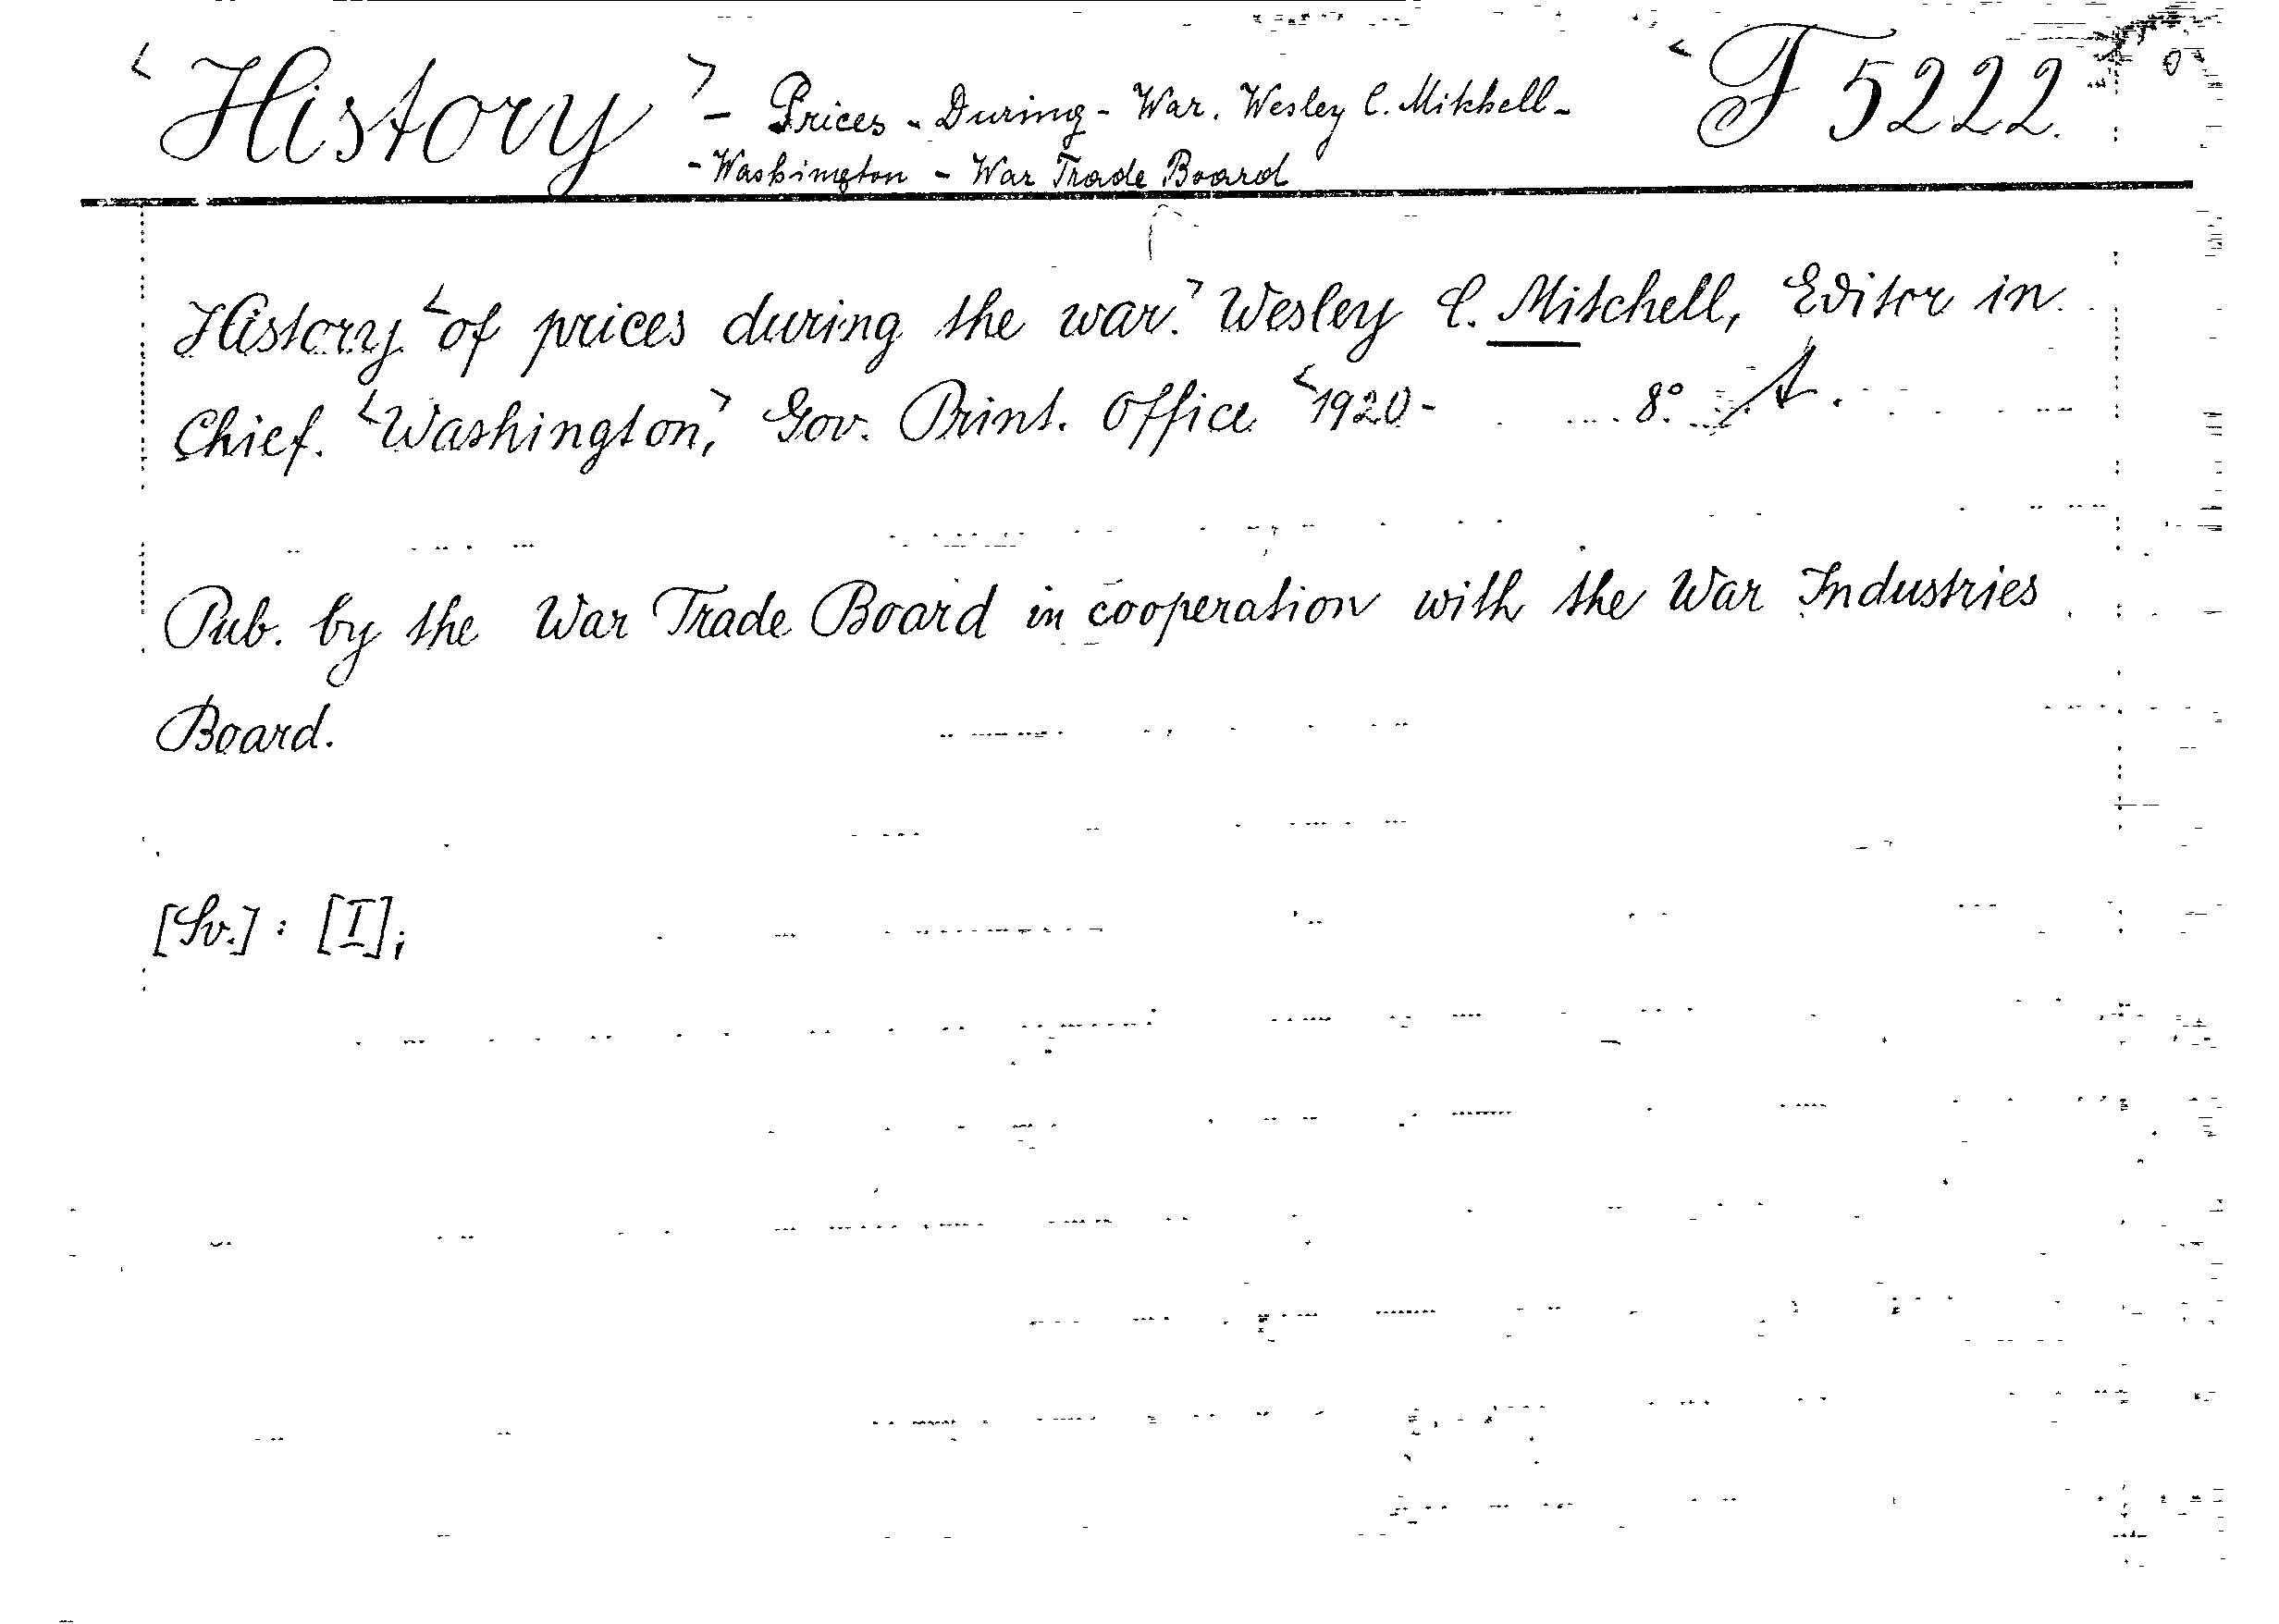 <History> - Prices - During - War. Wesley C. Mitchell - <F 5222.
- Washington - War Trade Board
History <of prices during the war.> Wesley C. Mitschell, Editor in
Chief. <Washington,> Gov. Print. Office <1920- 8°. A.
Pub. by the War Trade Board in cooperation with the War Industries
Board.
[Sv.] : [I];